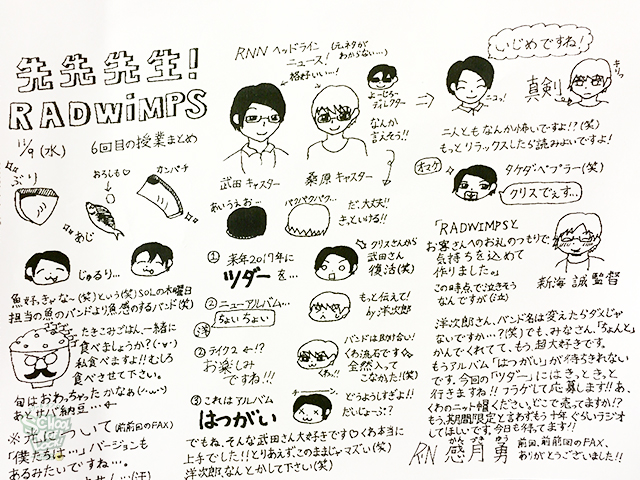 先先先生!
RADWiMPS
11/9 (水) 6回目の授業まとめ
ぶり
おろしも♡
カンパチ
あじ
じゅるり…
魚好きぃな〜(笑)という(笑)SOLの水曜日
担当の魚のバンドより魚感のするバンド(笑)
たきこみごはん、一緒に
食べましょうか?(･ω･)
私食べますよ!!むしろ
食べさせて下さい。
旬はおわっちゃったかなぁ(･ω･)
あとサバ納豆…
※光について(前前回のFAX)
「僕たちは…」バージョンも
あるみたいですね…。
RNN ヘッドライン
ニュース!
(元ネタが
わからない…)
格好いい…!
よーじろー
ディレクター
なんか
言えそう!!
武田キャスター
桑原キャスター
あいうえお…
パクパクパク…
だ、大丈夫!!
きっといける!!
① 来年2017年に
ツダーを…
クリスさんから
武田さん
復活(笑)
②ニューアルバム…
洋 ちょいちょい
もっと伝えて!
by 洋次郎
② テイク2 ←!?
お楽しみ
ですね!!!
バンドは助け合い!
くわ流石です
全然入って
こなかった!!(笑)
③ これはアルバム
はつがい
どうようしすぎよ!!
だいじょーぶ?
でもね、そんな武田さん大好きです♡くわ本当に
上手でした!!とりあえず、このままじゃマズい(笑)
洋次郎、なんとかして下さい(笑)
いじめですね!
ニコッ!
真剣
キリッ
二人ともなんか怖いですよ!!?(笑)
もっとリラックスしたら読みよいですよ!
オマケ
タケダ・ペプラー(笑)
クリスでぇす…
「RADWIMPSと
お客さんへのお礼のつもりで、
気持ちを込めて
作りました。」
この時点で泣きそう
なんですが(泣)
新海 誠 監督
洋次郎さん、バンド名は変えたらダメじゃ
ないですか…?(笑)でも、みなさん、「ちょんと」
かんでくれてて、もう、超大好きです。
もうアルバム「はつがい」が待ちきれない
です。今回の「ツダー」にはきっと、きっと
行きますね!!フラゲして応募します!!あ、
くわのニット帽ください。どこで売ってますか!?
もう、期間限定と言わずもう十年ぐらいラジオ
してほしいです。今日も待ってます!!
RN 感月勇
前回、前前回のFAX、
ありがとうございました!!